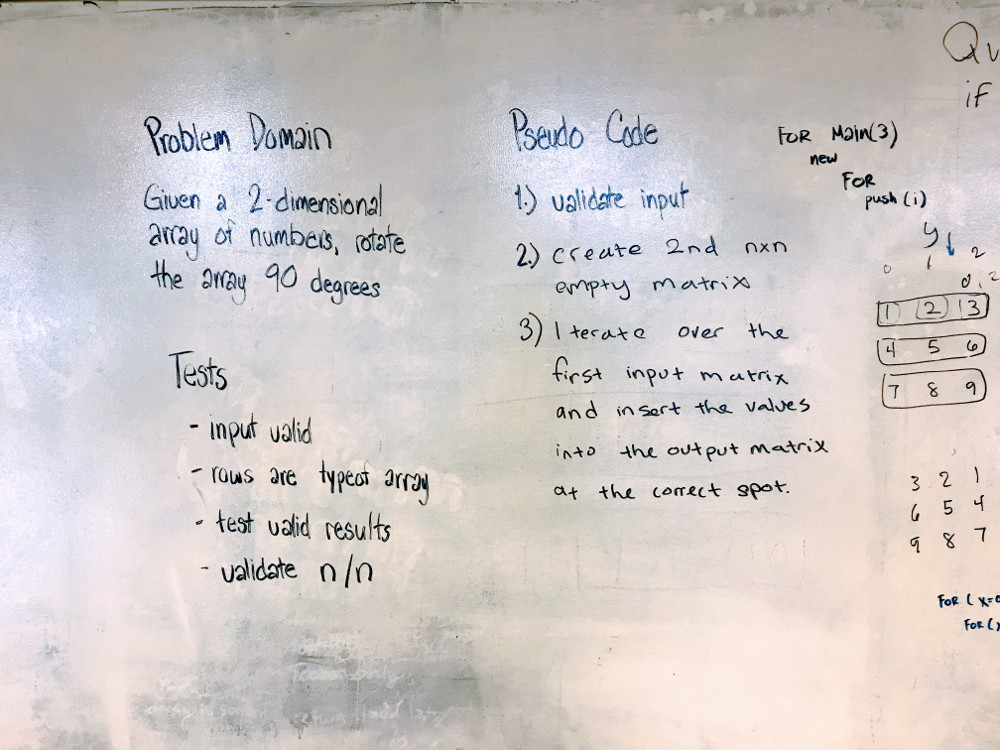 Problem Domain
Given a 2-dimensional
array of numbers, rotate
the array 90 degrees
Tests
- input valid
- rows are typeof array
- test valid results
- validate n/n
Pseudo Code
1.) validate input
2.) create 2nd nxn
empty matrix
3) Iterate over the
first input matrix
and insert the values
into the output matrix
at the correct spot.
if
FOR Main(3)
new
FOR
push(i)
y
0 1 2
1 2 3
4 5 6
7 8 9
3 2 1
6 5 4
9 8 7
FOR ( x=
FOR (